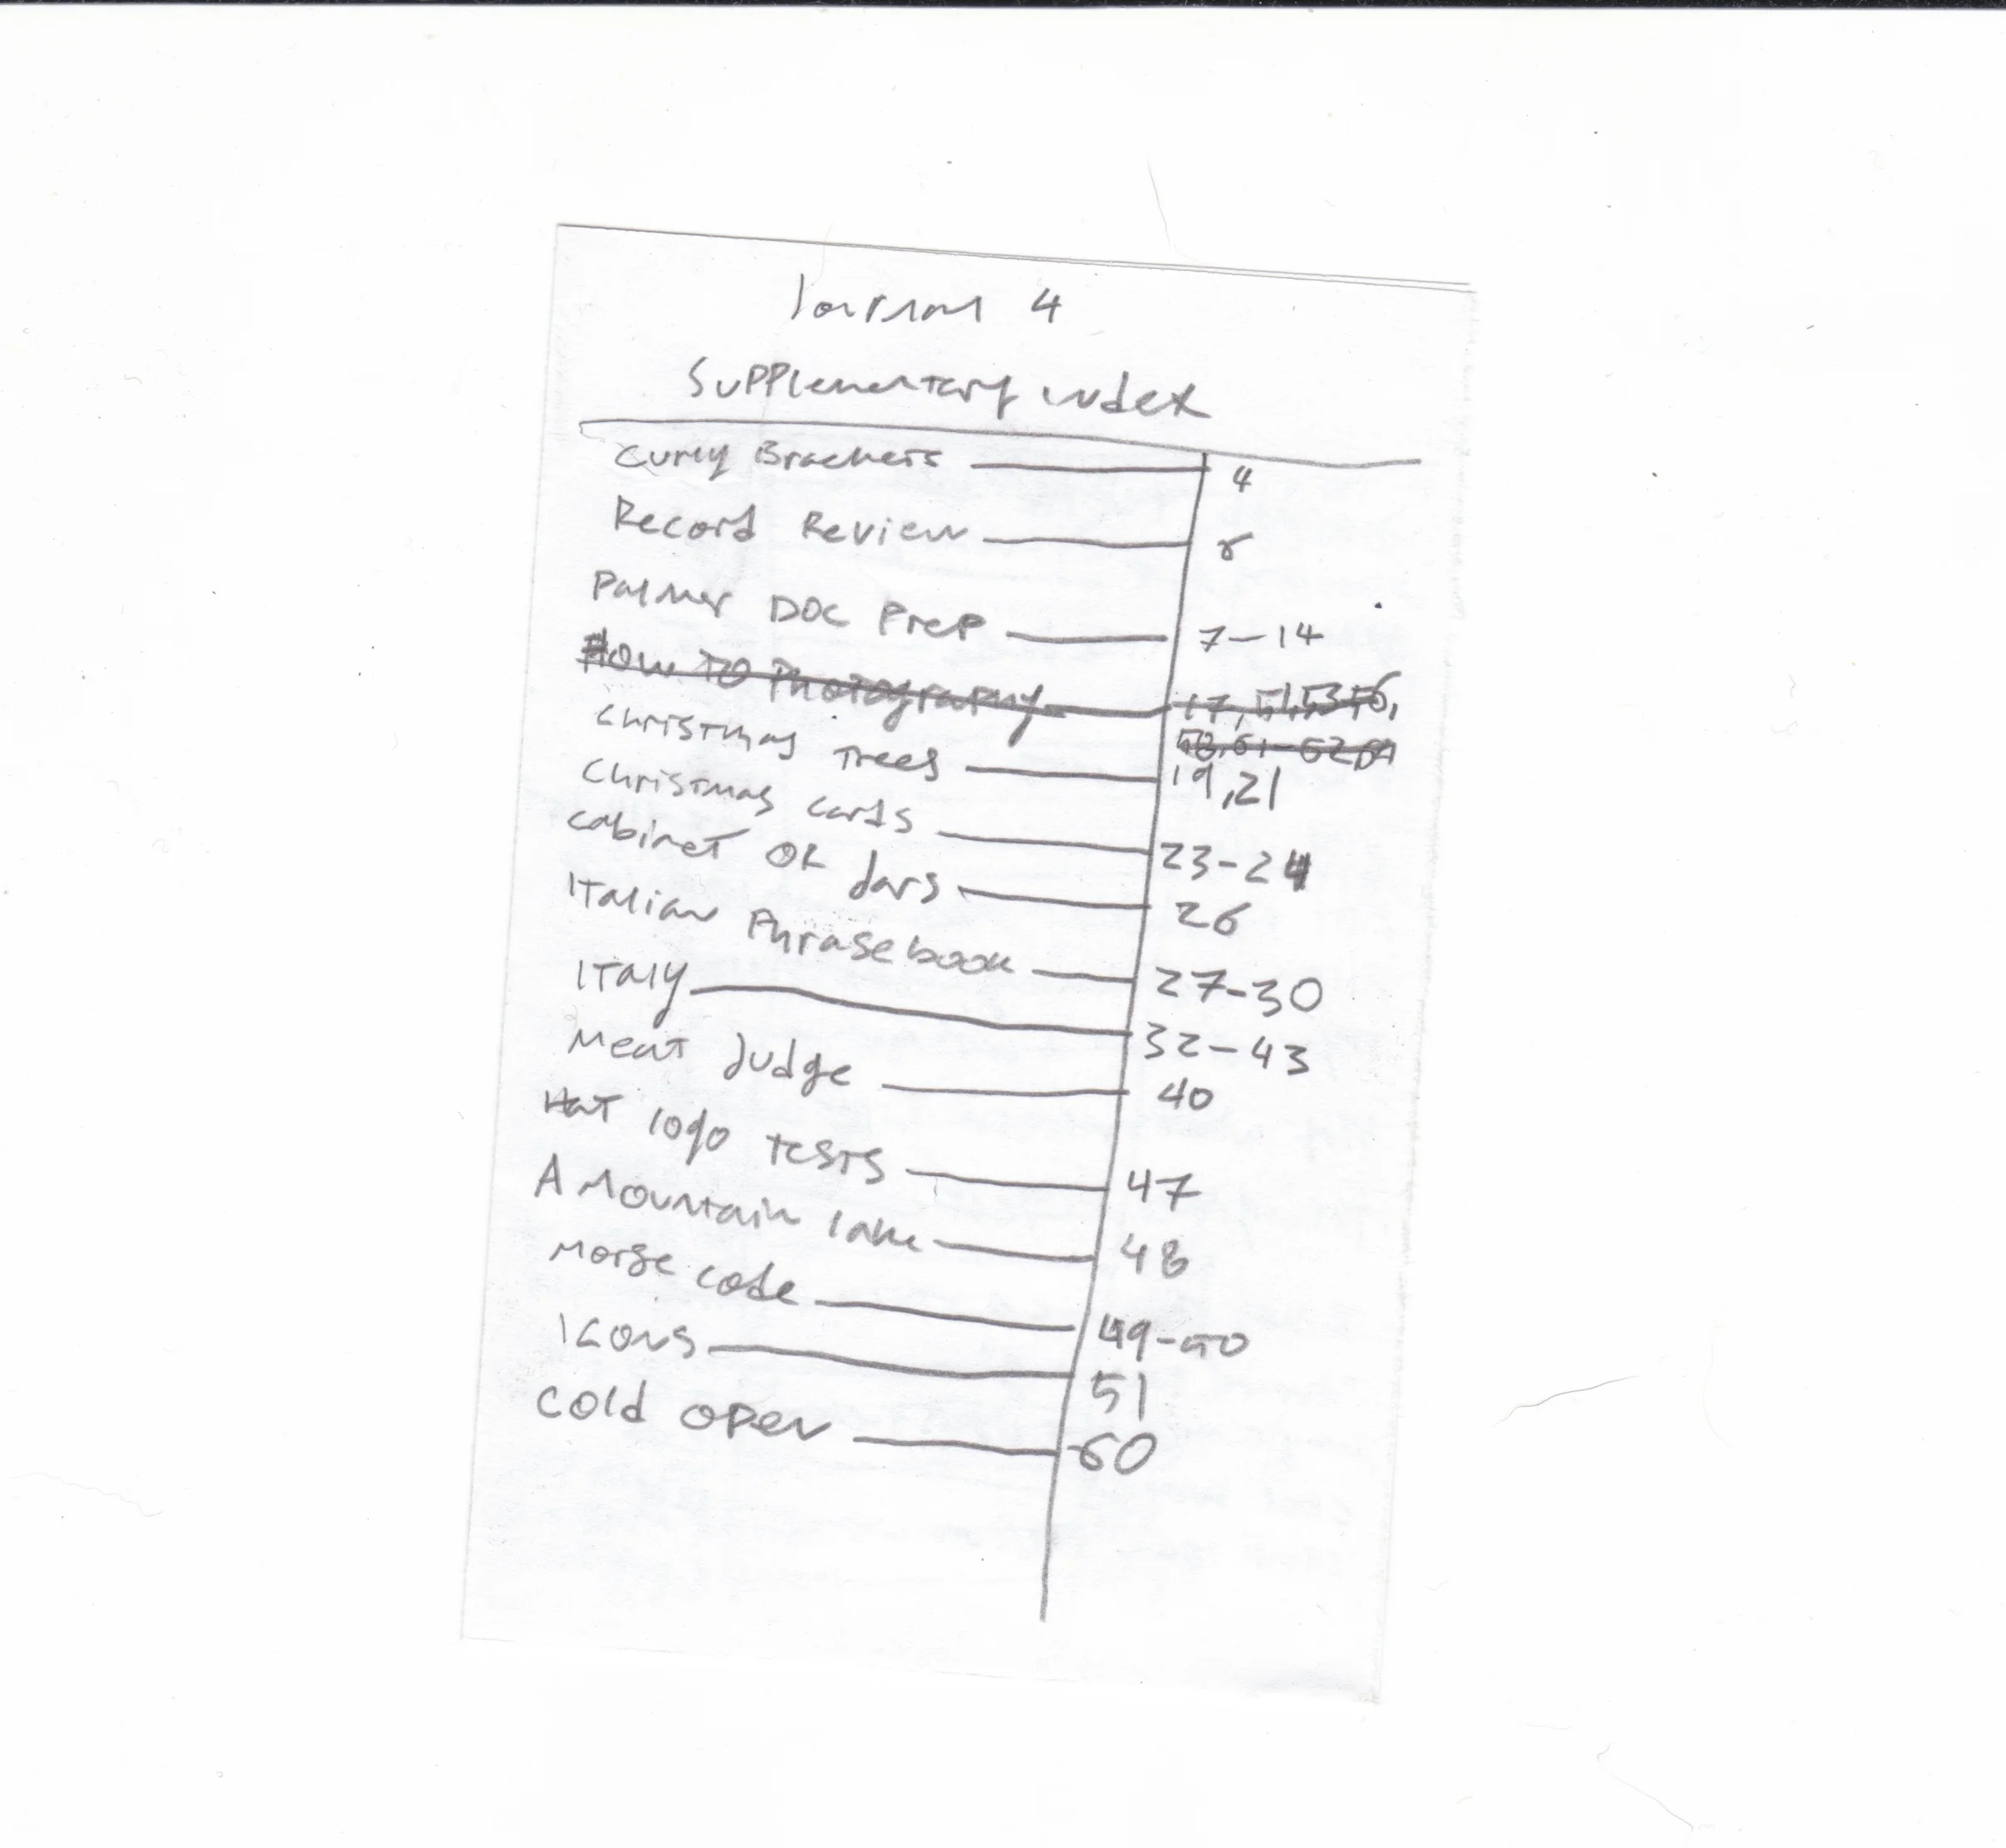 Journal 4
Supplementary index
Curly Brackets 4
Record Review
Palmer DOC Prep 7-14
How TO Photography 17, 51, 53-56,
58, 61-62, 64
Christmas Trees 19, 21
Christmas cards 23-24
Cabinet OF Jars 26
Italian Phrasebook 27-30
Italy 32-43
Meat Judge 40
Hat logo tests 47
A Mountain lake 48
Morse code 49-50
Icons 51
Cold open 60